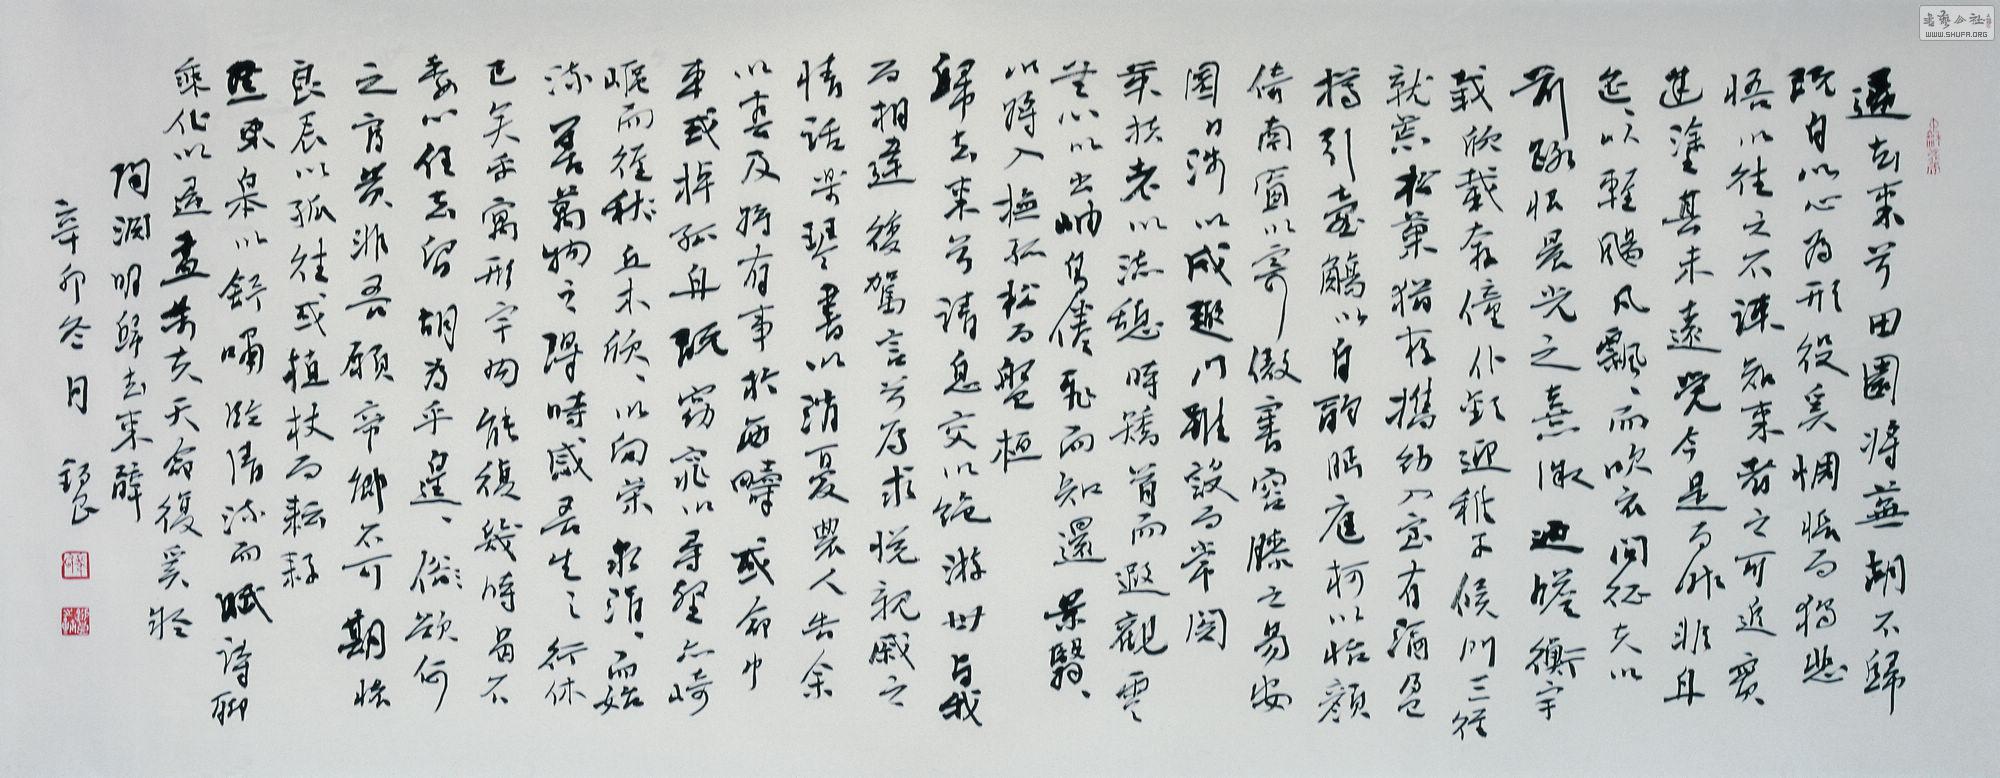 歸去來兮田園將蕪胡不歸
既自以心為形役奚惆悵而獨悲
悟以往之不諫知來者之可追實
迷塗其未遠覺今是而昨非舟
遙、以輕颺風飄、而吹衣問征夫以
前路恨晨光之熹微迺瞻衡宇
載欣載奔僮仆歡迎稚子候門三徑
就荒松菊猶存攜幼入室有酒盈
樽引壺觴以自酌眄庭柯以怡顏
倚南窗以寄傲審容膝之易安
園日涉以成趣門雖設而常關
策扶老以流憩時矯首而遐觀雲
無心以出岫鳥倦飛而知還景翳、
以將入撫孤松而盤桓
歸去來兮請息交以絕游世與我
而相違復駕言兮焉求悅親戚之
情話樂琴書以消憂農人告余
以春及將有事於西疇或命巾
車或棹孤舟既窈窕以尋壑亦崎
嶇而徑丘木欣、以向榮泉涓、而始
流善萬物之得時感吾生之行休
已矣乎寓形宇內能復幾時曷不
委心任去留胡為乎遑、欲何
之富貴非吾願帝鄉不可期懷
良辰以孤往或植杖而耘耔
登東皋以舒嘯臨清流而賦詩聊
乘化以歸盡樂夫天命復奚疑
陶淵明歸去來辭
辛卯冬月
書藝公社
WWW.SHUFA.ORG